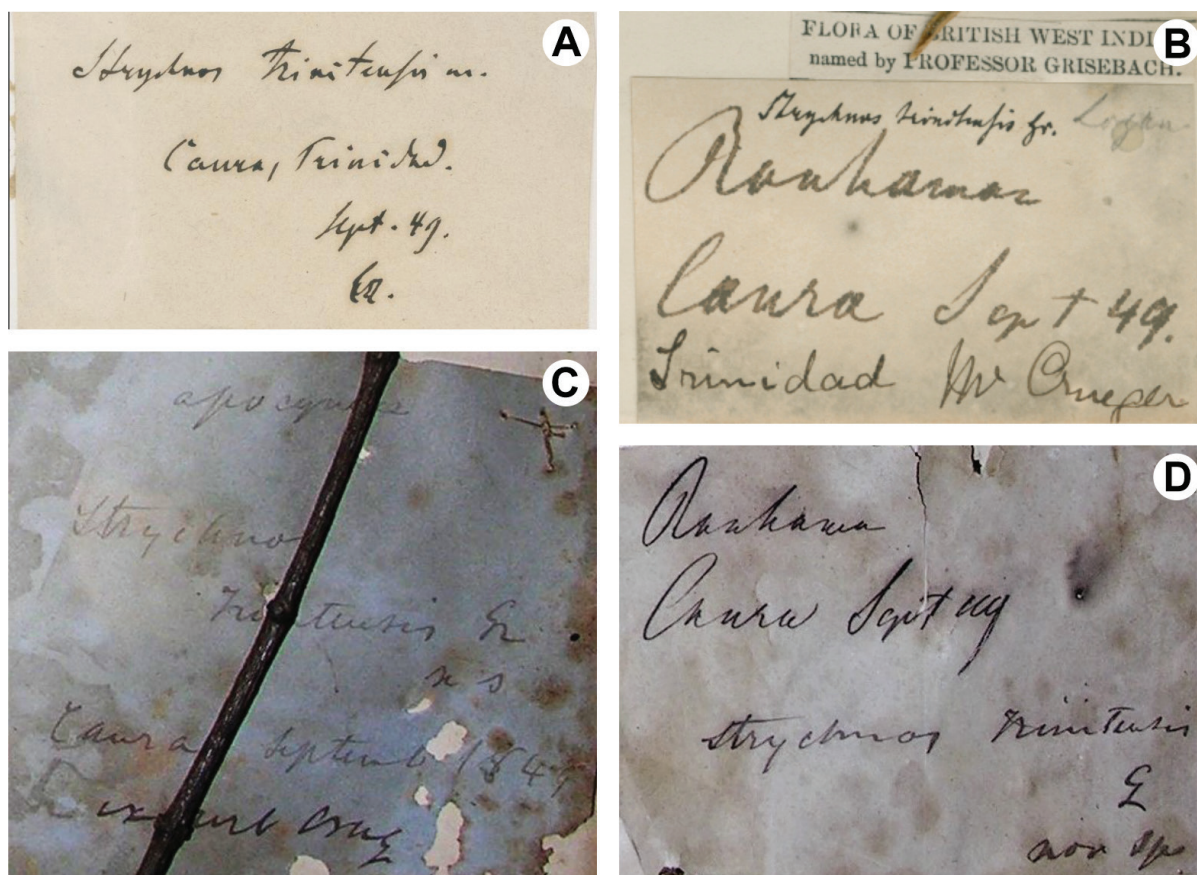 A
Strychnos trinitensis m.
Caura, Trinidad.
Sept. 49.
B
FLORA OF BRITISH WEST INDI
named by PROFESSOR GRISEBACH.
Strychnos trinitensis Gr.
Rouhamon
Caura Sept 49.
Trinidad Mr Crueger
C
apocyneae
Strychno
trinitensis Gr
n s
Caura Septemb 184
D
Rouhamon
Caura Sept 49
Strychnos Trinitensis
nov sp